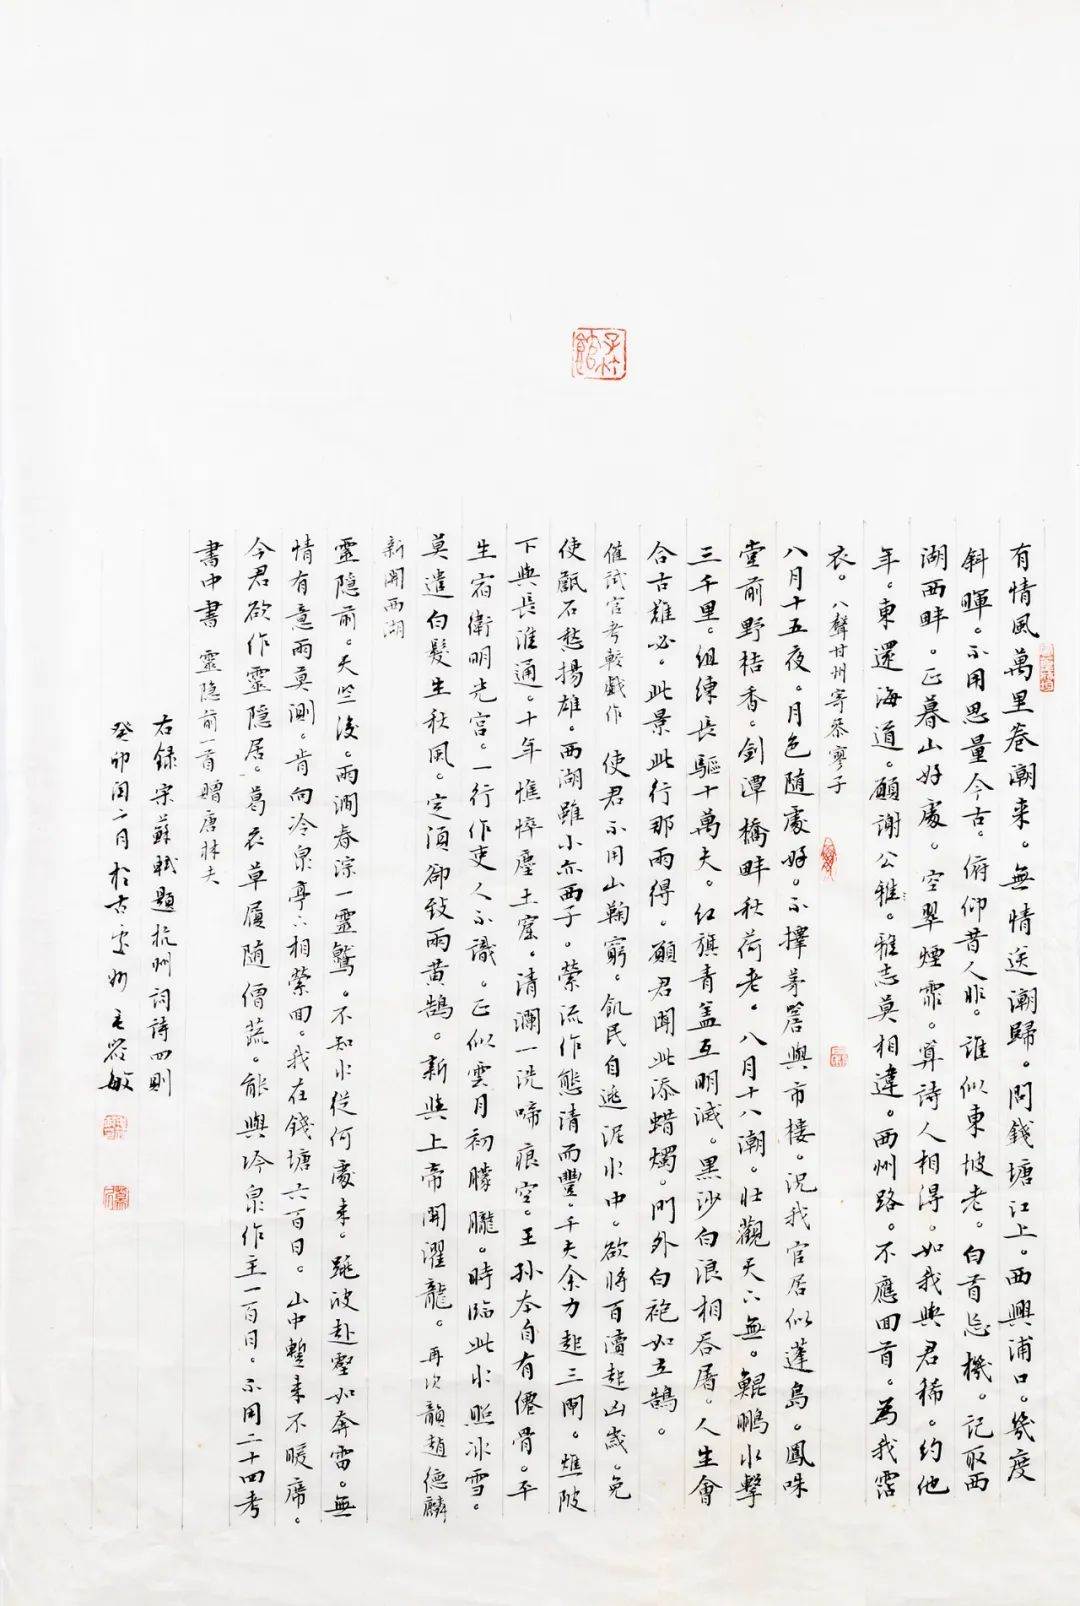 有情風萬里卷潮来。無情送潮歸。問錢塘江上。西興浦口。幾度
斜暉。不用思量今古。俯仰昔人非。誰似東坡老。白首忘機。記取西
湖西畔。正暮山好處。空翠煙霏。算詩人相得。如我與君稀。約他
年。東還海道。願謝公雅。雅志莫相違。西州路。不應回首。為我霑
衣。八聲甘州寄參寥子
八月十五夜。月色隨處好。不擇茅簷與市樓。況我官居似蓬島。鳳咮
堂前野桔香。劍潭橋畔秋荷老。八月十八潮。壯觀天下無。鯤鵬水擊
三千里。組練長驅十萬夫。紅旗青盖互明滅。黑沙白浪相吞屠。人生會
合古難必。此景此行那兩得。願君聞此添蜡燭。門外白袍如立鵠。
催試官考較戲作 使君不用山鞠窮。飢民自逃泥水中。欲將百瀆起凶歲。免
使甔石愁揚雄。西湖雖小亦西子。縈流作態清而豐。千夫余力起三閘。焦陂
下與長淮通。十年憔悴塵土窟。清瀾一洗啼痕空。王孫本自有僊骨。平
生宿衛明光宮。一行作吏人不識。正似雲月初朦朧。時臨此水照冰雪。
莫遣白髮生秋風。定須卻致兩黃鵠。新與上帝開濯龍。再次韻趙德麟
新開西湖
靈隱前。天竺後。兩澗春淙一靈鷲。不知水從何處来。跳波赴壑如奔雷。無
情有意兩莫測。肯向冷泉亭下相縈回。我在錢塘六百日。山中暫来不暖席。
今君欲作靈隱居。葛衣草屨随僧蔬。能與冷泉作主一百日。不用二十四考
書中書 靈隐前一首贈唐林夫
右録宋蘇軾題杭州詞詩四則
癸卯閏二月於古
子竹館